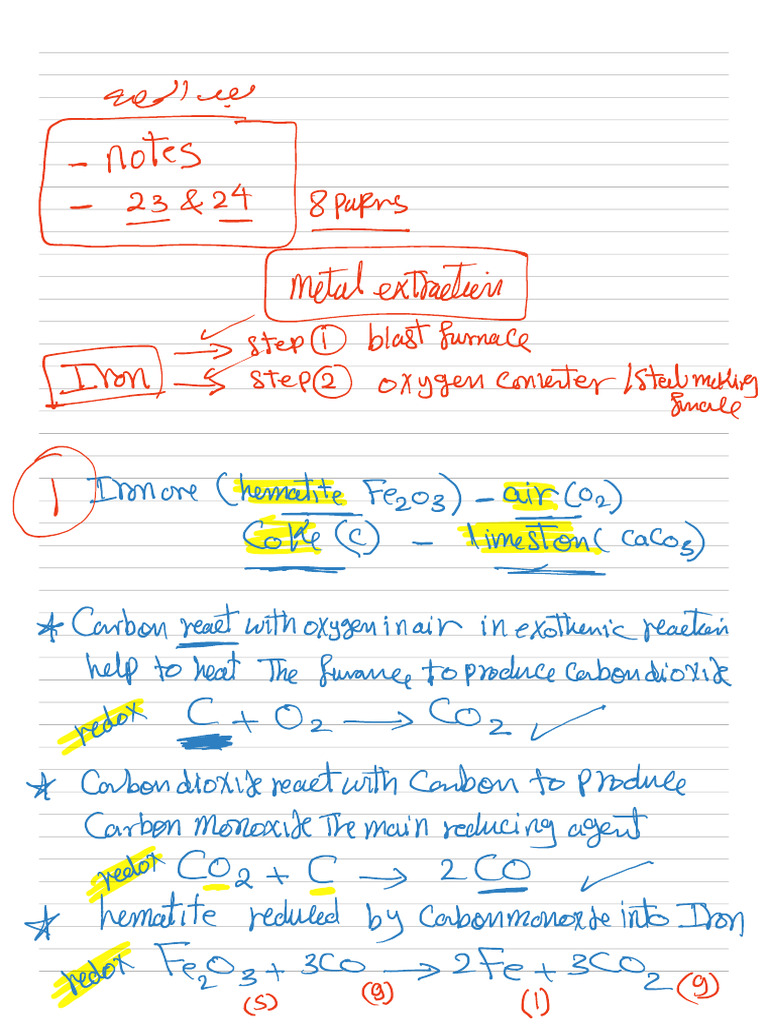 - notes
- 23 & 24 8 papers
metal extraction
Iron
step 1 blast furnace
step 2 oxygen converter / Steel making furnace
1 Iron ore (hematite Fe2O3) - air (O2)
Coke (C) - limeston (CaCO3)
* Carbon react with oxygen in air in exothemic reaction
help to heat The furance to produce Carbon dioxide
redox C + O2 → CO2 ✓
* Carbon dioxide react with Carbon to produce
Carbon monoxide The main reducing agent
redox CO2 + C → 2CO ✓
* hematite reduced by Carbon monoxide into Iron
redox Fe2O3 + 3CO → 2Fe + 3CO2
(s) (g) (l) (g)